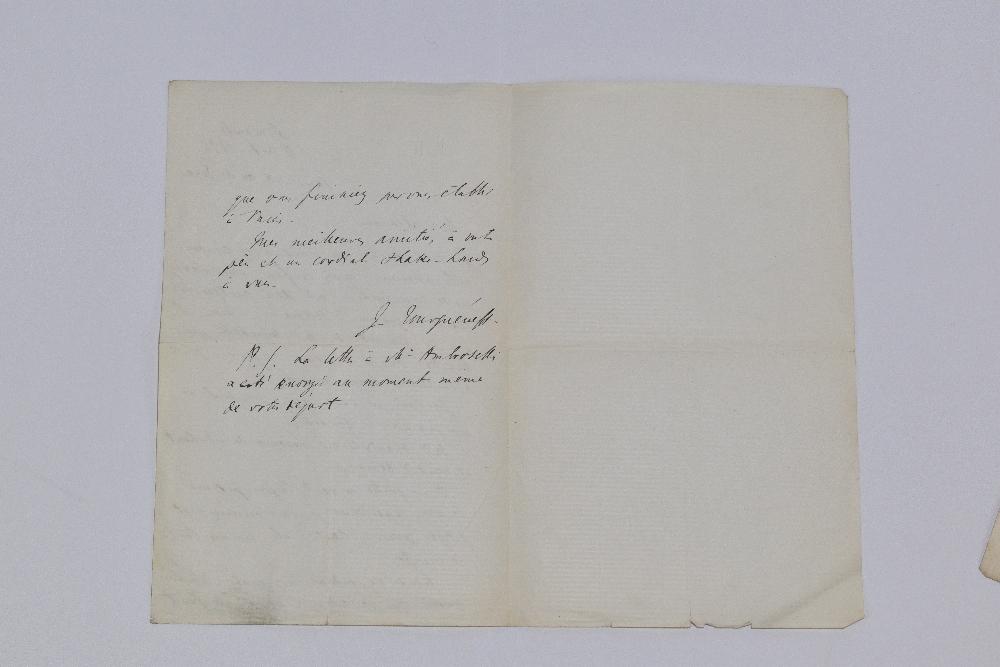 que vous finirez par vous établir
à Paris.
Mes meilleures amitiés à votre
père et un cordial shake-hands
à vous.
J. Tourguéneff.
P. S. La lettre à Mr Ambroselli
a été envoyée au moment même
de votre départ